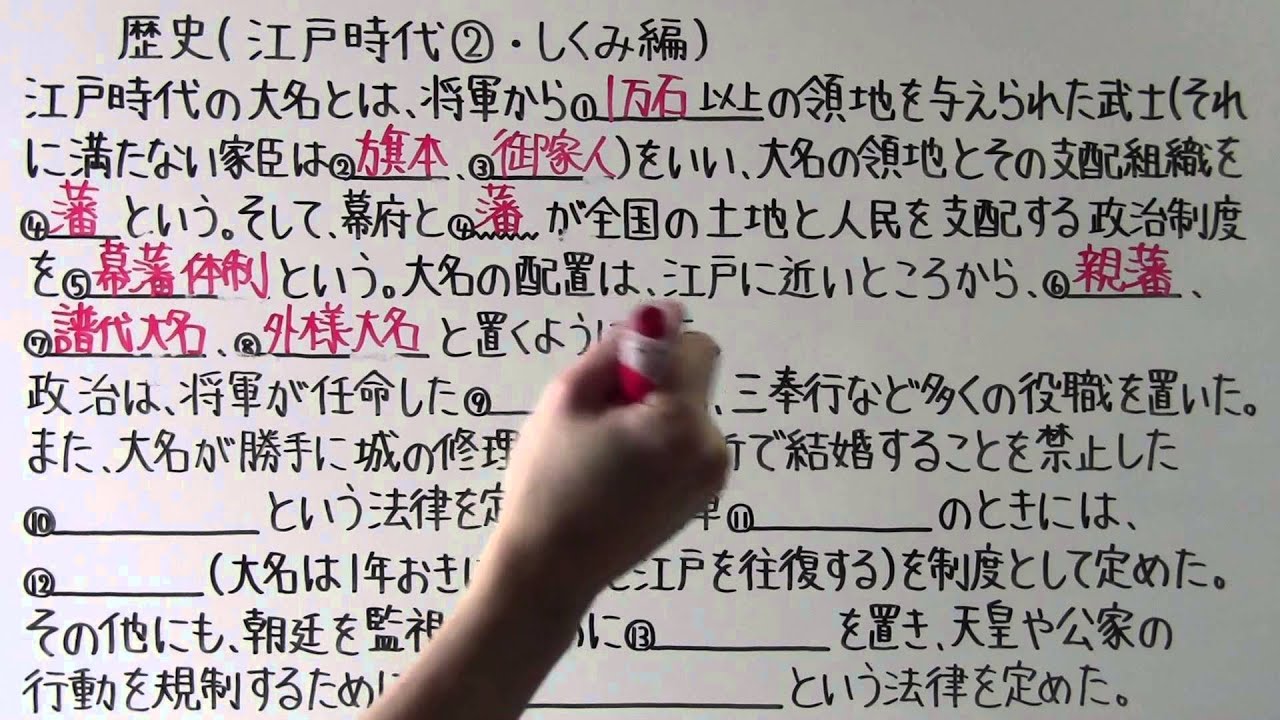 歴史(江戸時代②・しくみ編)
江戸時代の大名とは、将軍から①1万石以上の領地を与えられた武士(それ
に満たない家臣は②旗本、③御家人)をいい、大名の領地とその支配組織を
④藩という。そして、幕府と④藩が全国の土地と人民を支配する政治制度
を⑤幕藩体制という。大名の配置は、江戸に近いところから、⑥親藩、
⑦譜代大名、⑧外様大名と置くように
政治は、将軍が任命した⑨、三奉行など多くの役職を置いた。
また、大名が勝手に城の修理で結婚することを禁止した
⑩という法律を定⑪のときには、
⑫(大名は1年おきに江戸を往復する)を制度として定めた。
その他にも、朝廷を監視に⑬を置き、天皇や公家の
行動を規制するためにという法律を定めた。